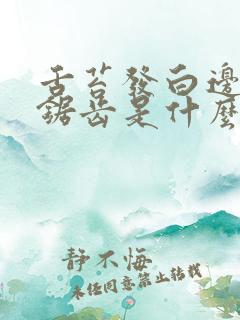 舌苔發白邊
鋸齿是什麽
静不悔
未经同意禁止转载